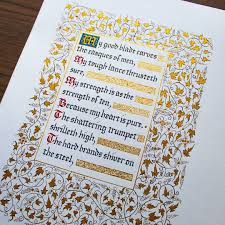 My good blade carves
the casques of men,
My tough lance thrusteth
sure,
My strength is as the
strength of ten,
Because my heart is pure.
The shattering trumpet
shrilleth high,
The hard brands shiver on
the steel,